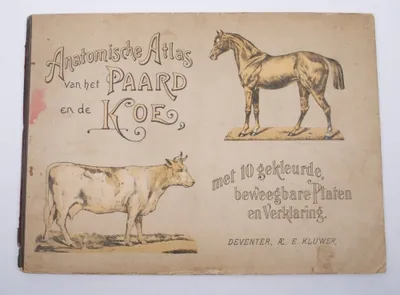 Anatomische Atlas
van het PAARD
en de KOE,
met 10 gekleurde,
beweegbare Platen
en Verklaring.
DEVENTER, Æ. E. KLUWER.